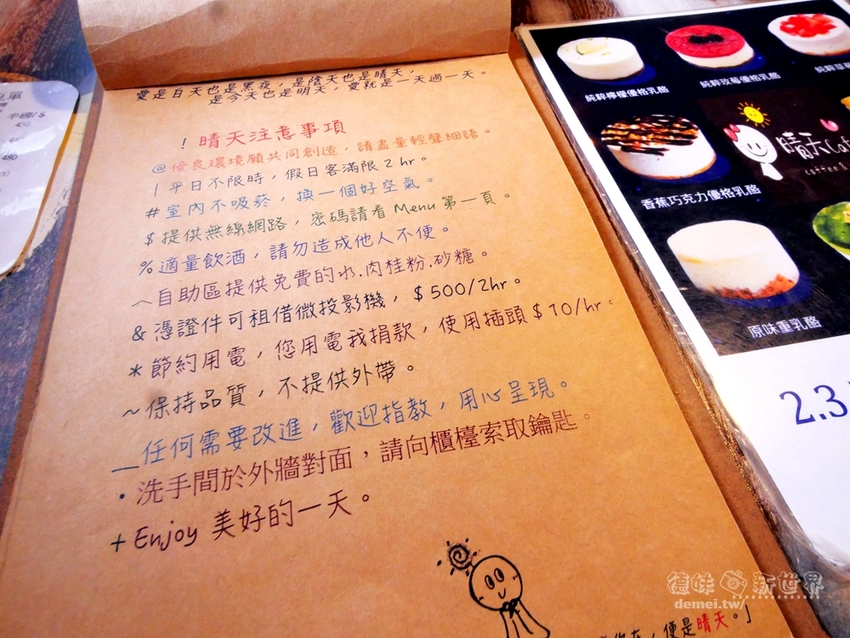 愛是白天也是黑夜，是陰天也是晴天，
是今天也是明天，愛就是一天過一天。
! 晴天注意事項
@優良環境願共同創造，請盡量輕聲細語。
| 平日不限時，假日客滿限2hr。
#室內不吸菸，換一個好空氣。
$提供無線網路，密碼請看Menu第一頁。
%適量飲酒，請勿造成他人不便。
^自助區提供免費的水.肉桂粉.砂糖。
&憑證件可租借微投影機，$500/2hr。
*節約用電，您用電我捐款，使用插頭$10/hr。
~保持品質，不提供外帶。
_任何需要改進，歡迎指教，用心呈現。
·洗手間於外牆對面，請向櫃檯索取鑰匙。
+Enjoy 美好的一天。
便是晴天。」
單
半磅/$
480
純粹檸檬優格乳酪
純粹玫莓優格乳酪
純粹草莓
香蕉巧克力優格乳酪
晴天Caf
coffee&
原味重乳酪
2.3
德妹 新世界
demei.tw/